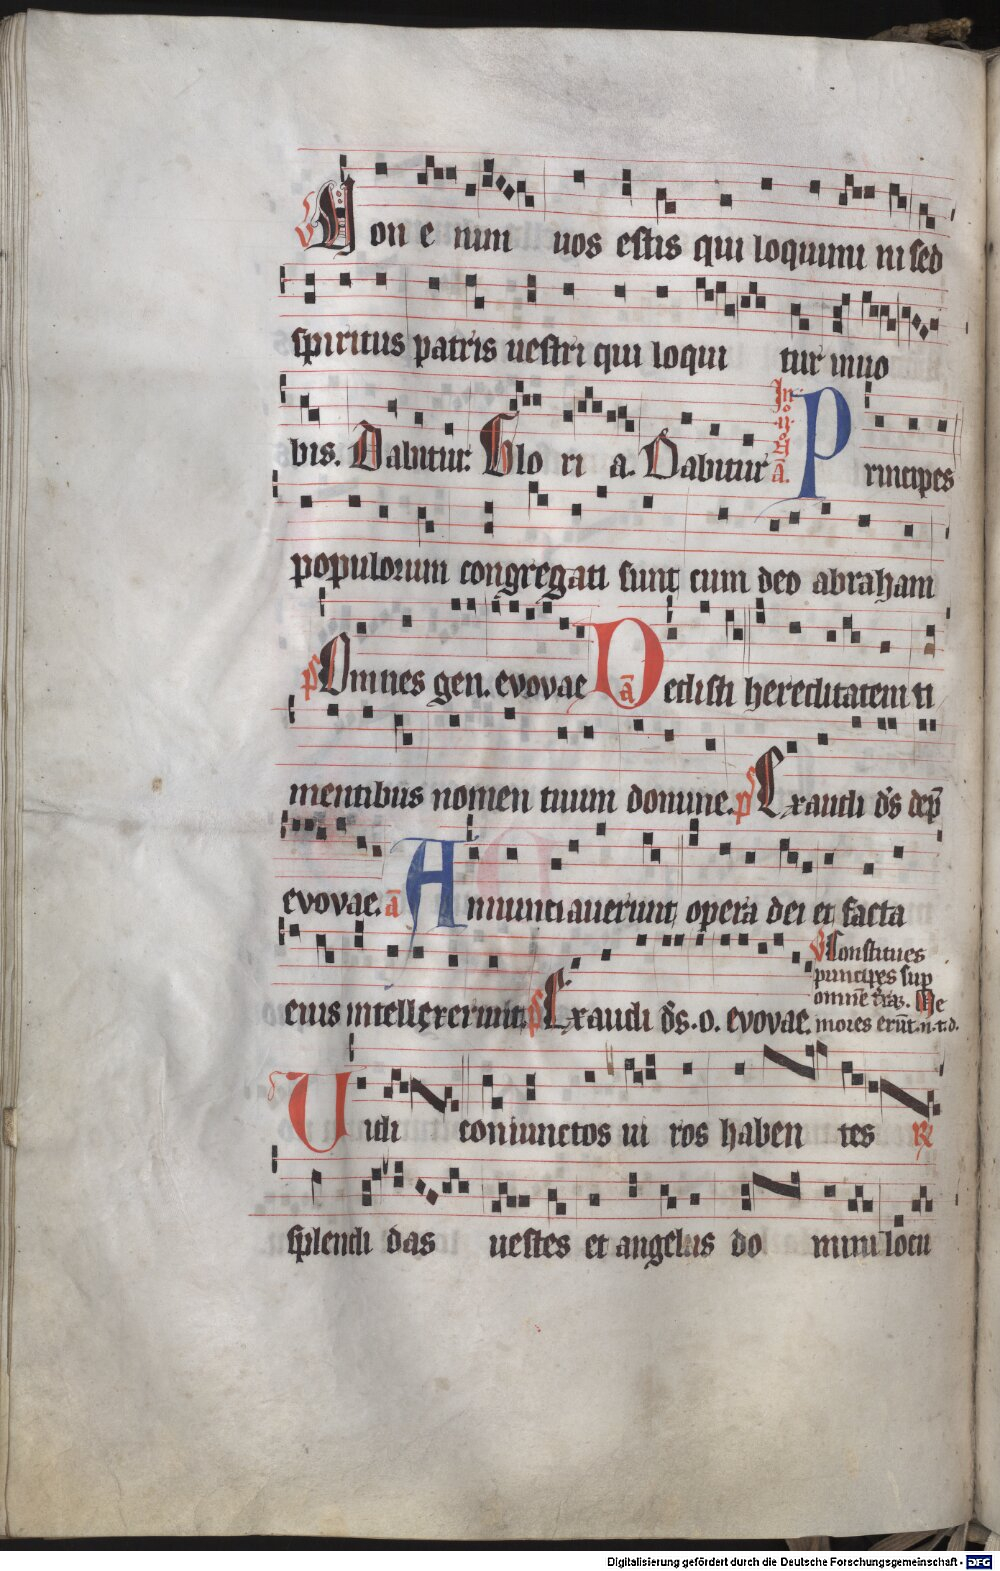 V Non e nim uos estis qui loquimi ni sed
spiritus patris uestri qui loqui tur in uo
bis. Dabitur. Glo ri a. Dabitur In ·ij· ā. Principes
populorum congregati sunt cum deo abraham
ps Omnes gen. evovae ā Dedisti hereditatem ti
mentibus nomen tuum domine. ps Exaudi ds dep̄
evovae. ā Annunciauerunt opera dei et facta
eius intellexerunt. ps Exaudi ds. o. evovae.
V Constitues
principes sup
omnē Me
mores erūt .n.t.d.
Uidi coniunctos ui ros haben tes R
splendi das uestes et angelus do mini locu
Digitalisierung gefördert durch die Deutsche Forschungsgemeinschaft - DFG